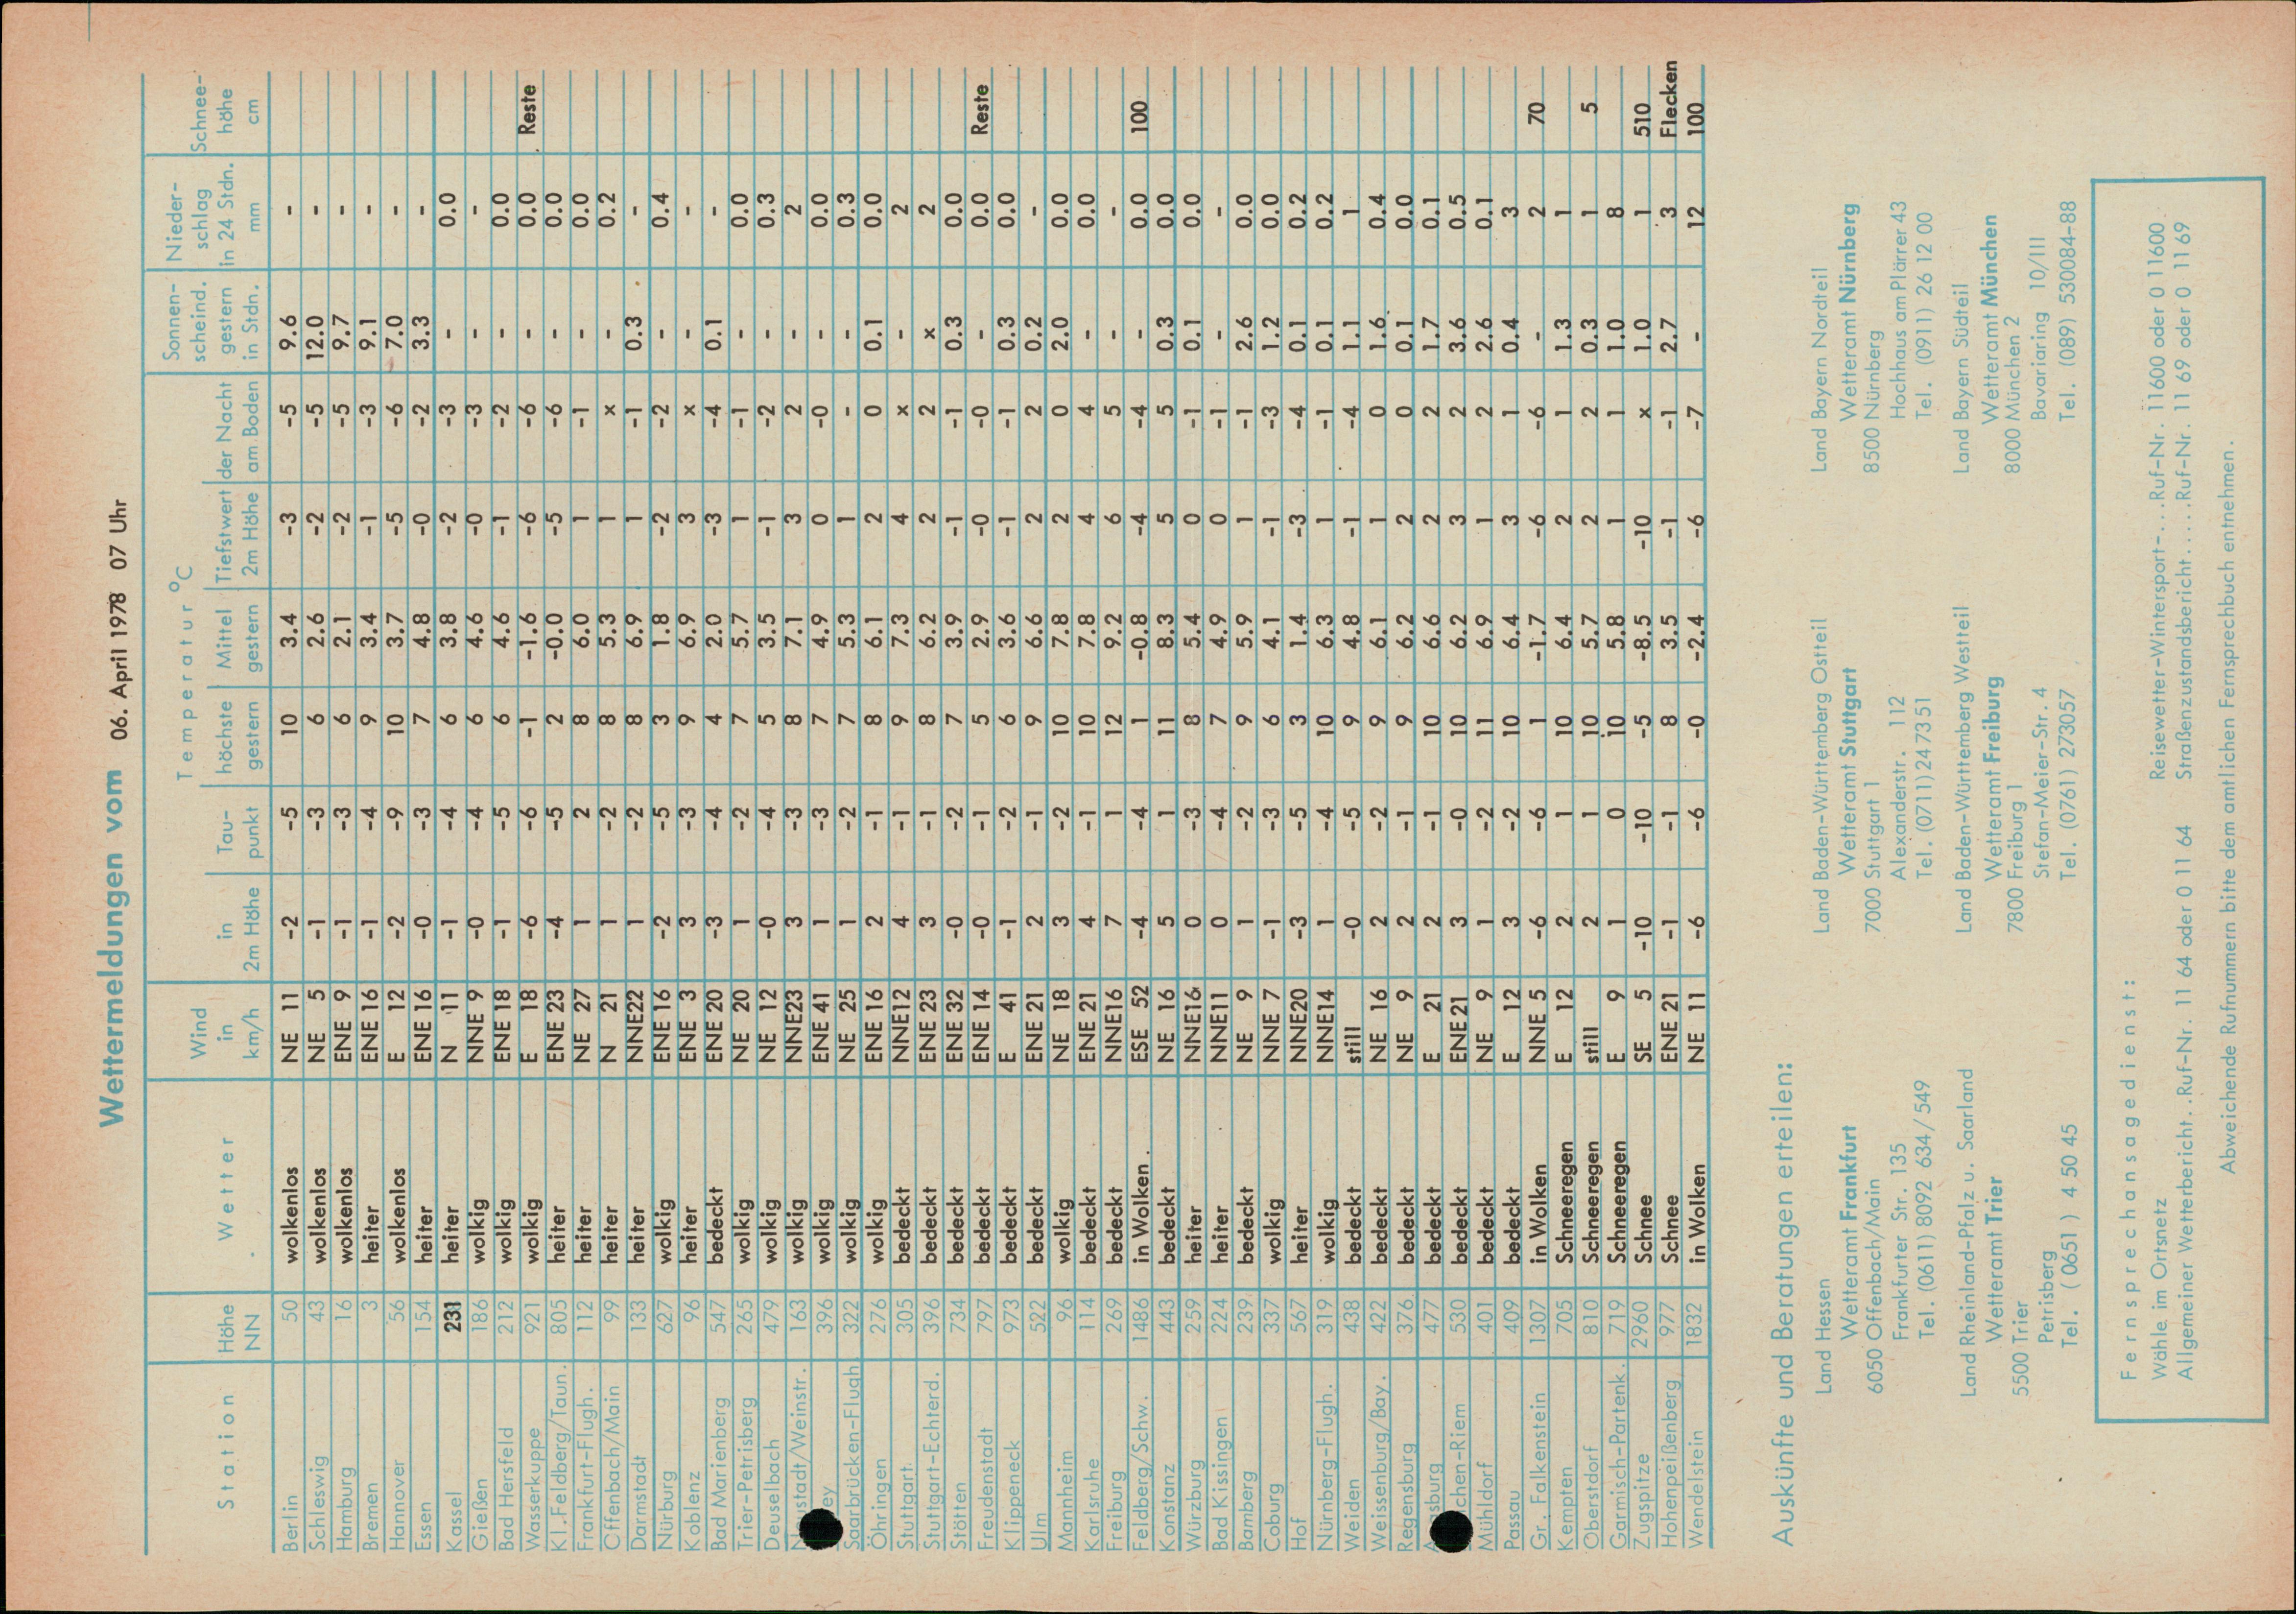 Wettermeldungen vom 06. April 1978 07 Uhr
Temperatur °C
Station Höhe NN Wetter Wind in km/h in 2m Höhe Tau-punkt höchste gestern Mittel gestern Tiefstwert der Nacht 2m Höhe am Boden Sonnen-scheind. gestern in Stdn. Nieder-schlag in 24 Stdn. mm Schnee-höhe cm
Berlin 50 wolkenlos NE 11 -2 -5 10 3.4 -3 -5 9.6 -
Schleswig 43 wolkenlos NE 5 -1 -3 6 2.6 -2 -5 12.0 -
Hamburg 16 wolkenlos ENE 9 -1 -3 6 2.1 -2 -5 9.7 -
Bremen 3 heiter ENE 16 -1 -4 9 3.4 -1 -3 9.1 -
Hannover 56 wolkenlos E 12 -2 -9 10 3.7 -5 -6 7.0 -
Essen 154 heiter ENE 16 -0 -3 7 4.8 -0 -2 3.3 -
Kassel 231 heiter N 11 -1 -4 6 3.8 -2 -3 - 0.0
Gießen 186 wolkig NNE 9 -0 -4 6 4.6 -0 -3 - -
Bad Hersfeld 212 wolkig ENE 18 -1 -5 6 4.6 -1 -2 - 0.0
Wasserkuppe 921 wolkig E 18 -6 -6 -1 -1.6 -6 -6 - 0.0 Reste
Kl.Feldberg/Taun. 805 heiter ENE 23 -4 -5 2 -0.0 -5 -6 - 0.0
Frankfurt-Flugh. 112 heiter NE 27 1 2 8 6.0 1 -1 - 0.0
Offenbach/Main 99 heiter N 21 1 -2 8 5.3 1 x - 0.2
Darmstadt 133 heiter NNE22 1 -2 8 6.9 1 -1 0.3 -
Nürburg 627 wolkig ENE 16 -2 -5 3 1.8 -2 -2 - 0.4
Koblenz 96 heiter ENE 3 3 -3 9 6.9 3 x - -
Bad Marienberg 547 bedeckt ENE 20 -3 -4 4 2.0 -3 -4 0.1 -
Trier-Petrisberg 265 wolkig NE 20 1 -2 7 5.7 1 -1 - 0.0
Deuselbach 479 wolkig NE 12 -0 -4 5 3.5 -1 -2 - 0.3
stadt/Weinstr. 163 wolkig NNE23 3 -3 8 7.1 3 2 - 2
ey 396 wolkig ENE 41 1 -3 7 4.9 0 -0 - 0.0
Saarbrücken-Flugh 322 wolkig NE 25 1 -2 7 5.3 1 - - 0.3
Öhringen 276 wolkig ENE 16 2 -1 8 6.1 2 0 0.1 0.0
Stuttgart 305 bedeckt NNE12 4 -1 9 7.3 4 x - 2
Stuttgart-Echterd. 396 bedeckt ENE 23 3 -1 8 6.2 2 2 x 2
Stötten 734 bedeckt ENE 32 -0 -2 7 3.9 -1 -1 0.3 0.0
Freudenstadt 797 bedeckt ENE 14 -0 -1 5 2.9 -0 -0 - 0.0 Reste
Klippeneck 973 bedeckt E 41 -1 -2 6 3.6 -1 -1 0.3 0.0
Ulm 522 bedeckt ENE 21 2 -1 9 6.6 2 2 0.2 -
Mannheim 96 wolkig NE 18 3 -2 10 7.8 2 0 2.0 0.0
Karlsruhe 114 bedeckt ENE 21 4 -1 10 7.8 4 4 - 0.0
Freiburg 269 bedeckt NNE16 7 1 12 9.2 6 5 - -
Feldberg/Schw. 1486 in Wolken ESE 52 -4 -4 1 -0.8 -4 -4 - 0.0 100
Konstanz 443 bedeckt NE 16 5 1 11 8.3 5 5 0.3 0.0
Würzburg 259 heiter NNE16 0 -3 8 5.4 0 -1 0.1 0.0
Bad Kissingen 224 heiter NNE11 0 -4 7 4.9 0 -1 - -
Bamberg 239 bedeckt NE 9 1 -2 9 5.9 1 -1 2.6 0.0
Coburg 337 wolkig NNE 7 -1 -3 6 4.1 -1 -3 1.2 0.0
Hof 567 heiter NNE20 -3 -5 3 1.4 -3 -4 0.1 0.2
Nürnberg-Flugh. 319 wolkig NNE14 1 -4 10 6.3 1 -1 0.1 0.2
Weiden 438 bedeckt still -0 -5 9 4.8 -1 -4 1.1 1
Weissenburg/Bay. 422 bedeckt NE 16 2 -2 9 6.1 1 0 1.6 0.4
Regensburg 376 bedeckt NE 9 2 -1 9 6.2 2 0 0.1 0.0
A sburg 477 bedeckt E 21 2 -1 10 6.6 2 2 1.7 0.1
chen-Riem 530 bedeckt ENE21 3 -0 10 6.2 3 2 3.6 0.5
Mühldorf 401 bedeckt NE 9 1 -2 11 6.9 1 2 2.6 0.1
Passau 409 bedeckt E 12 3 -2 10 6.4 3 1 0.4 3
Gr. Falkenstein 1307 in Wolken NNE 5 -6 -6 1 -1.7 -6 -6 - 2 70
Kempten 705 Schneeregen E 12 2 1 10 6.4 2 1 1.3 1
Oberstdorf 810 Schneeregen still 2 1 10 5.7 2 2 0.3 1 5
Garmisch-Partenk. 719 Schneeregen E 9 1 0 10 5.8 1 1 1.0 8
Zugspitze 2960 Schnee SE 5 -10 -10 -5 -8.5 -10 x 1.0 1 510
Hohenpeißenberg 977 Schnee ENE 21 -1 -1 8 3.5 -1 -1 2.7 3 Flecken
Wendelstein 1832 in Wolken NE 11 -6 -6 -0 -2.4 -6 -7 - 12 100
Auskünfte und Beratungen erteilen:
Land Hessen
Wetteramt Frankfurt
6050 Offenbach/Main
Frankfurter Str. 135
Tel. (0611) 8092 634/549
Land Rheinland-Pfalz u. Saarland
Wetteramt Trier
5500 Trier
Petrisberg
Tel. (0651 ) 4 50 45
Land Baden-Württemberg Ostteil
Wetteramt Stuttgart
7000 Stuttgart 1
Alexanderstr. 112
Tel. (0711) 24 73 51
Land Baden-Württemberg Westteil
Wetteramt Freiburg
7800 Freiburg 1
Stefan-Meier-Str. 4
Tel. (0761) 273057
Land Bayern Nordteil
Wetteramt Nürnberg
8500 Nürnberg
Hochhaus am Plärrer 43
Tel. (0911) 26 12 00
Land Bayern Südteil
Wetteramt München
8000 München 2
Bavariaring 10/III
Tel. (089) 530084-88
Fernsprechansagedienst:
Wähle im Ortsnetz Reisewetter-Wintersport-...Ruf-Nr. 11600 oder 0 11600
Allgemeiner Wetterbericht..Ruf-Nr. 11 64 oder 0 11 64 Straßenzustandsbericht.....Ruf-Nr. 11 69 oder 0 11 69
Abweichende Rufnummern bitte dem amtlichen Fernsprechbuch entnehmen.